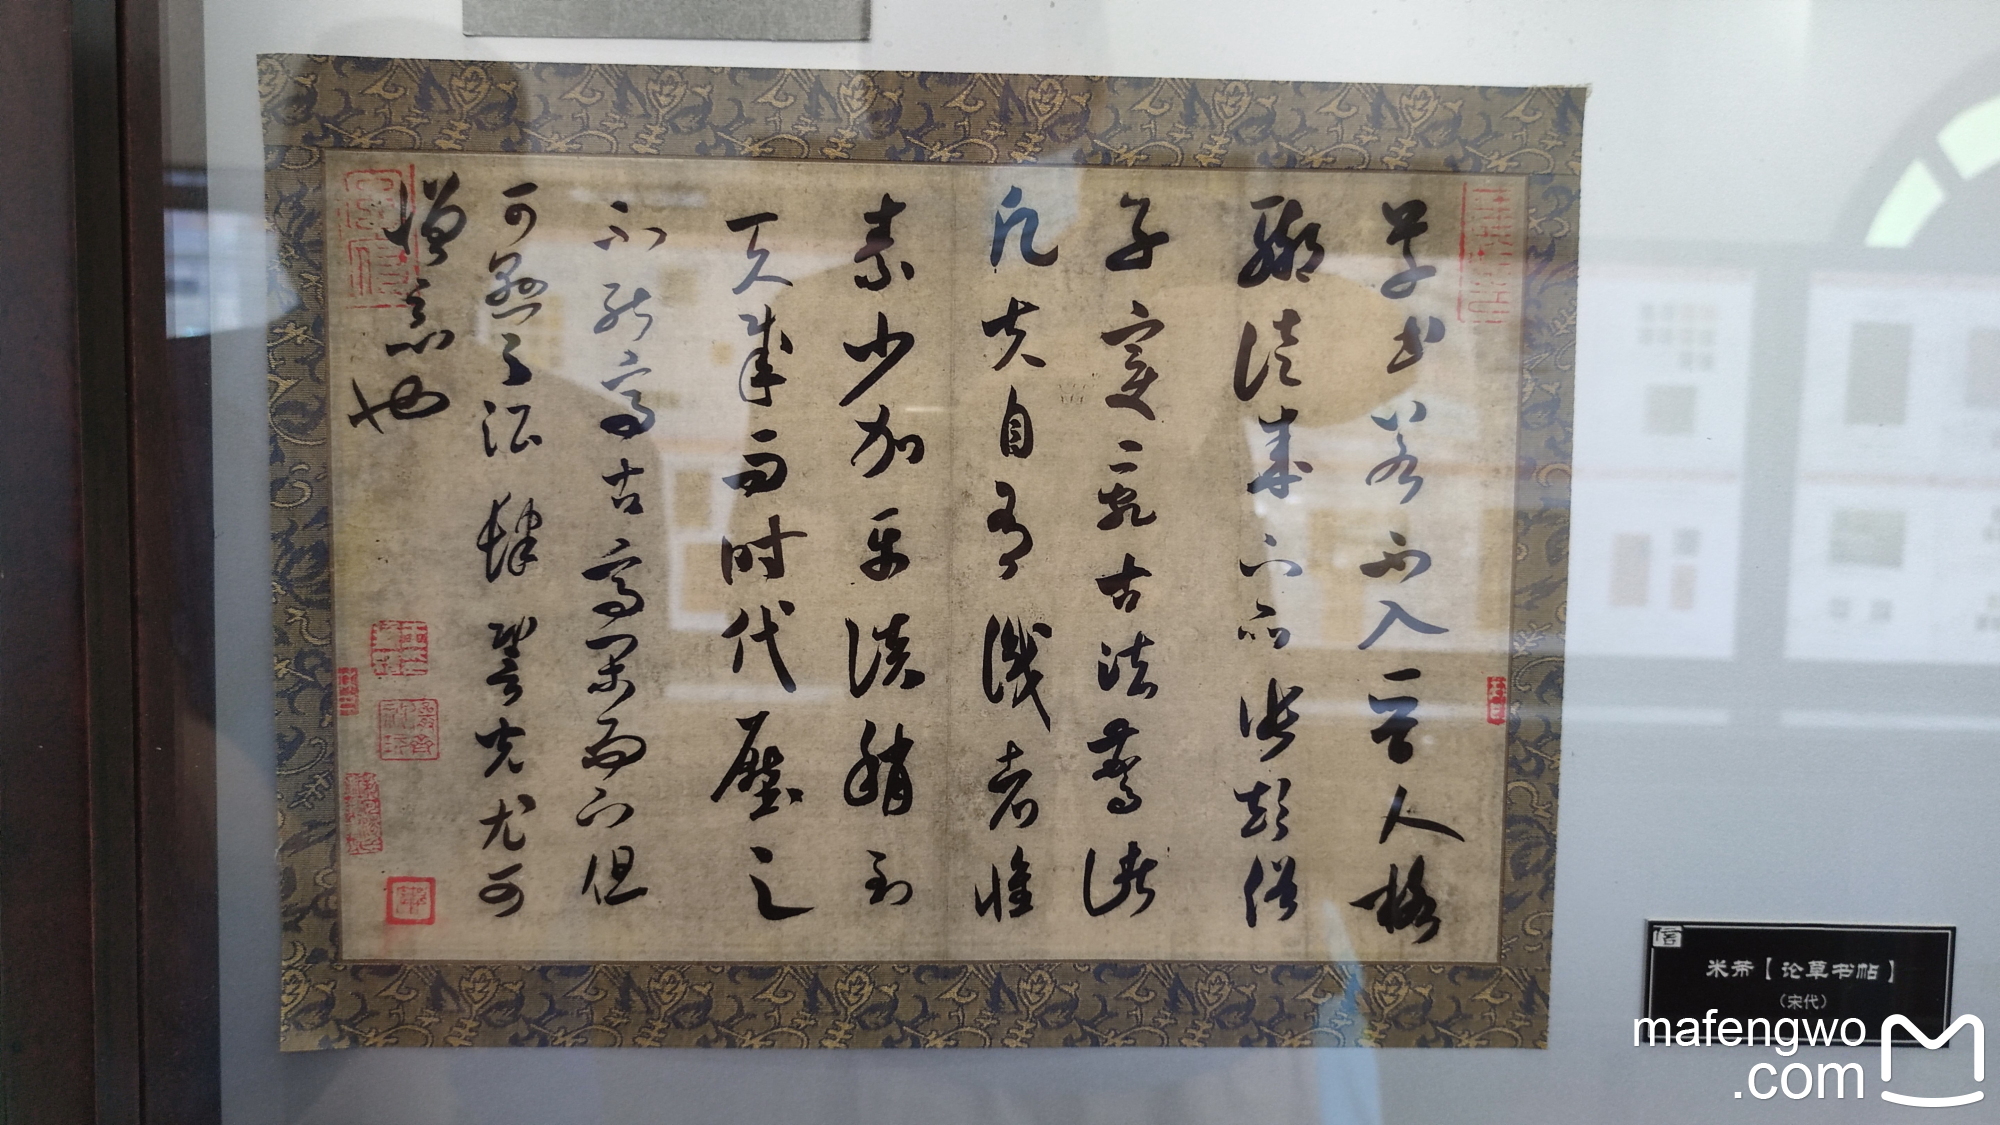 草書若不入晉人格
聊徒成下品張顛俗
子變亂古法驚諸
凡夫自有識者懷
素少加平淡稍到
天成而時代壓之
不能高古高閑而下但
可懸之酒肆䛒光尤可
憎惡也
米芾【论草书帖】
（宋代）
mafengwo
.com